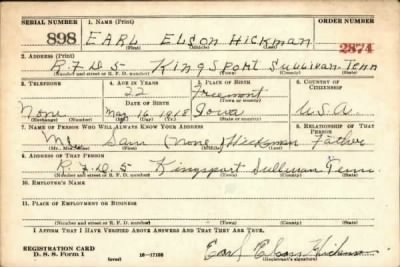 SERIAL NUMBER 1. NAME (Print) ORDER NUMBER
898 EARL ELSON HICKMAN 2874
(First) (Middle) (Last)
2. ADDRESS (Print)
R.F.D. 5 KINGSPORT SULLIVAN TENN
(Number and street or R. F. D. number) (Town) (County) (State)
3. TELEPHONE 4. AGE IN YEARS 5. PLACE OF BIRTH 6. COUNTRY OF CITIZENSHIP
22 Freemont
DATE OF BIRTH (Town or county)
None Mar 16 1918 Iowa U.S.A
(Exchange) (Number) (Mo.) (Day) (Yr.) (State or country)
7. NAME OF PERSON WHO WILL ALWAYS KNOW YOUR ADDRESS 8. RELATIONSHIP OF THAT PERSON
Mr. Sam (None) Hickman Father
(Mr., Mrs., Miss) (First) (Middle) (Last)
9. ADDRESS OF THAT PERSON
R.F.D. 5 Kingsport Sullivan Tenn
(Number and street or R. F. D. number) (Town) (County) (State)
10. EMPLOYER'S NAME
11. PLACE OF EMPLOYMENT OR BUSINESS
(Number and street or R. F. D. number) (Town) (County) (State)
I AFFIRM THAT I HAVE VERIFIED ABOVE ANSWERS AND THAT THEY ARE TRUE.
REGISTRATION CARD
D. S. S. Form 1 (over) 16-17105 Earl Elson Hickman
(Registrant's signature)